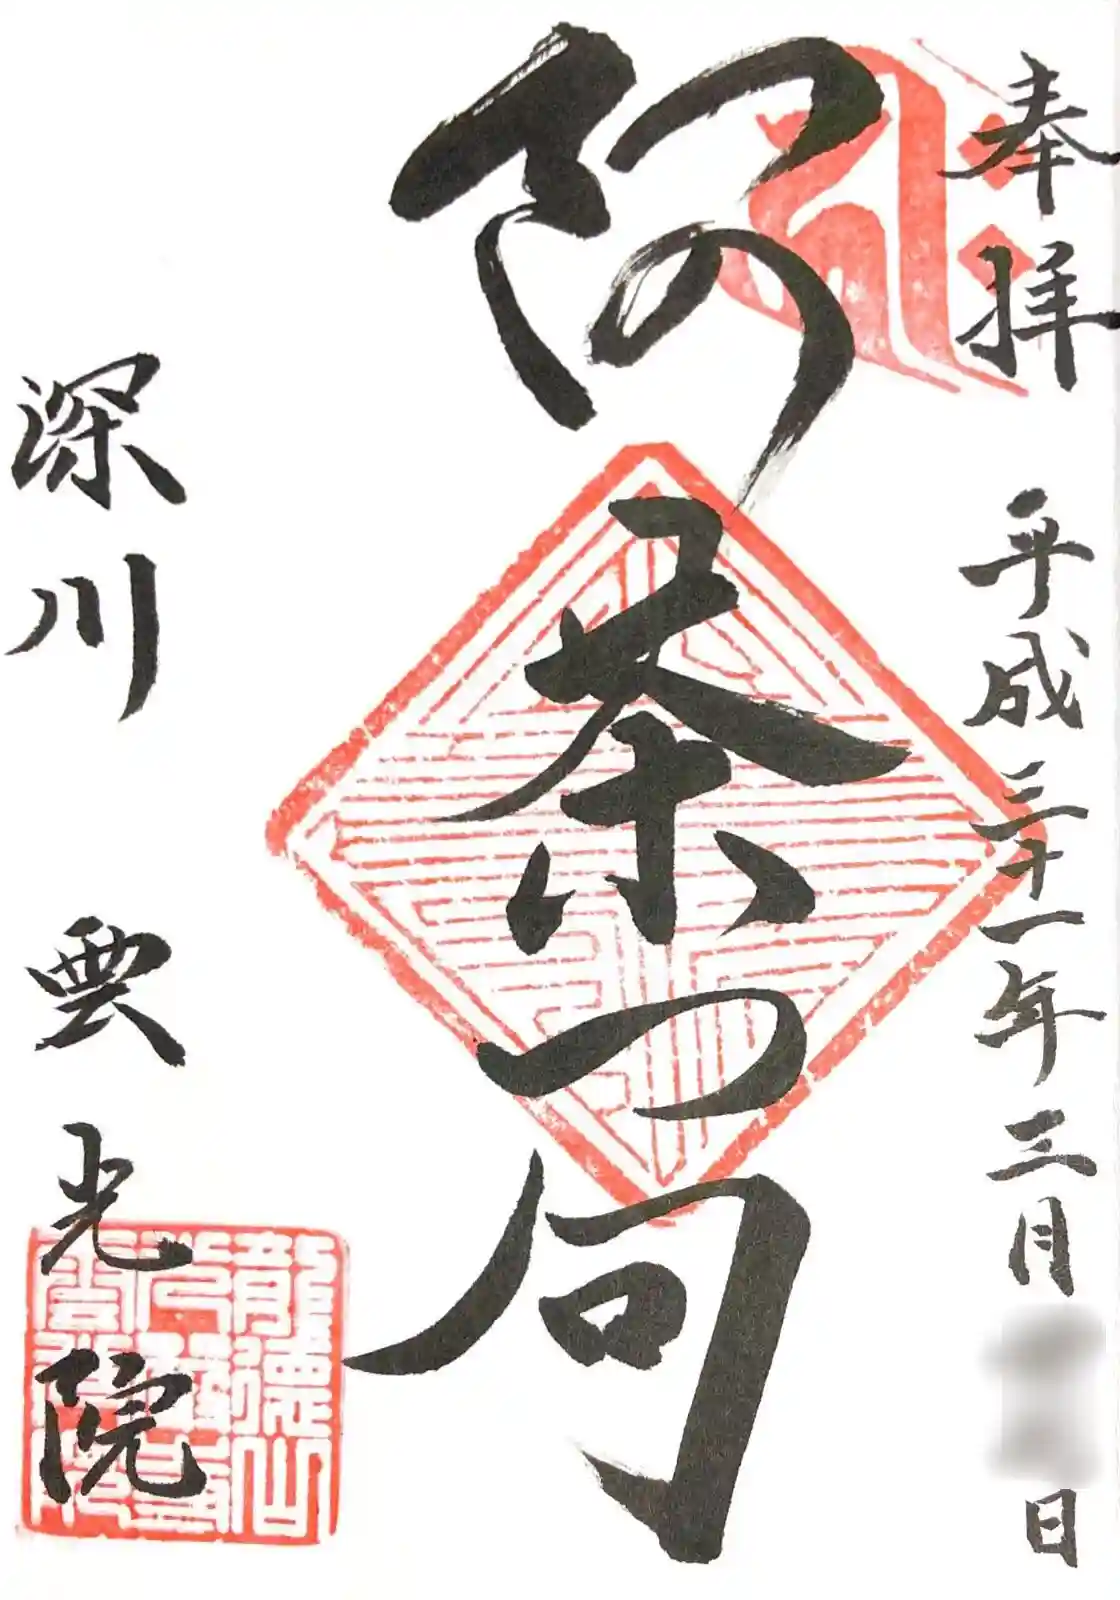 奉拝 平成三十一年三月 日
阿茶つ局
深川 雲光院
龍徳山